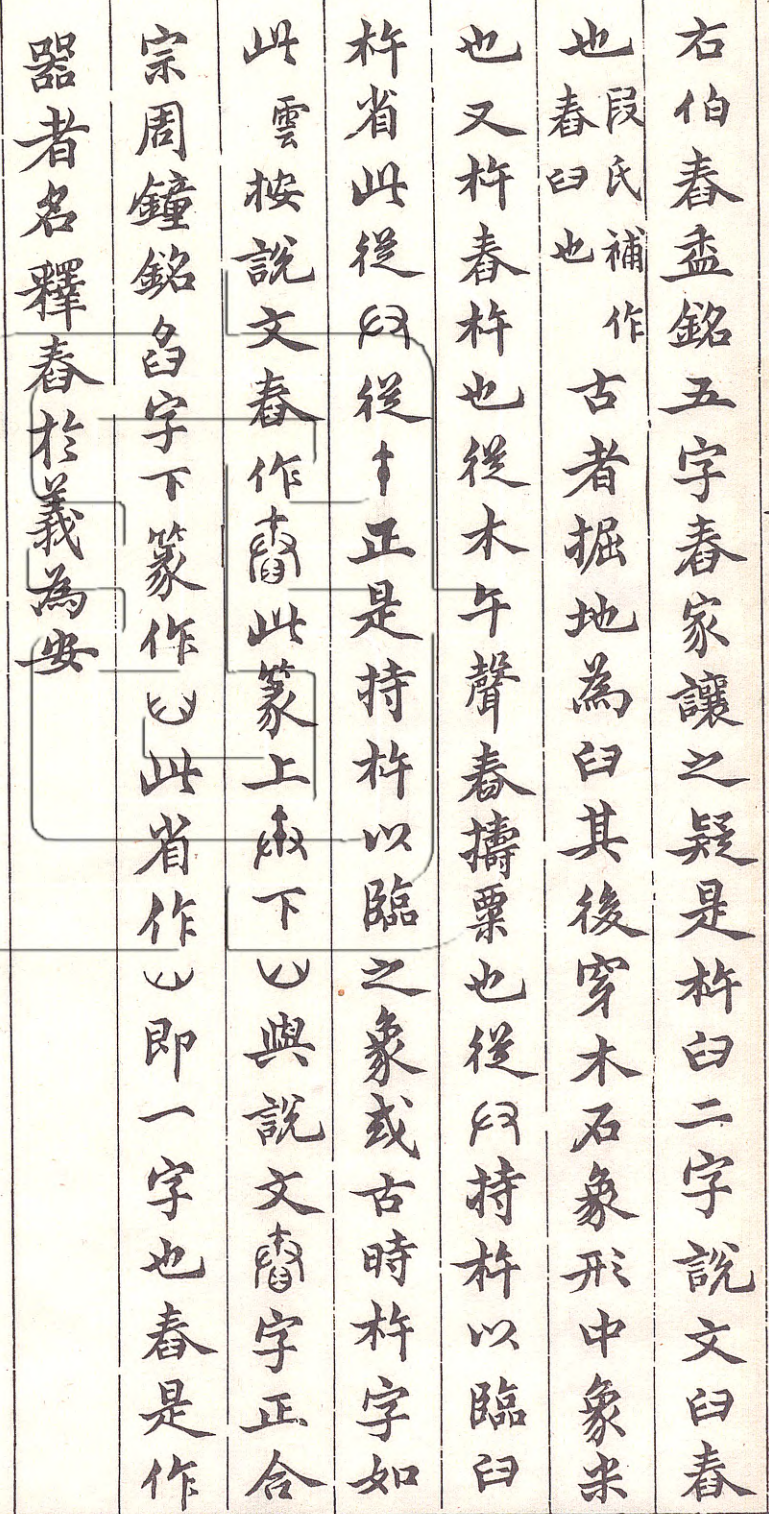 右伯舂盉銘五字舂家讓之疑是杵臼二字說文臼舂
也段氏補作舂臼也古者掘地為臼其後穿木石象形中象米
也又杵舂杵也從木午聲舂擣粟也從𠬞持杵以臨臼
杵省此從𠬞從正是持杵以臨之象或古時杵字如
此雲按說文舂作此篆上下與說文字正合
宗周鐘銘臽字下篆作此省作即一字也舂是作
器者名釋舂於義為安